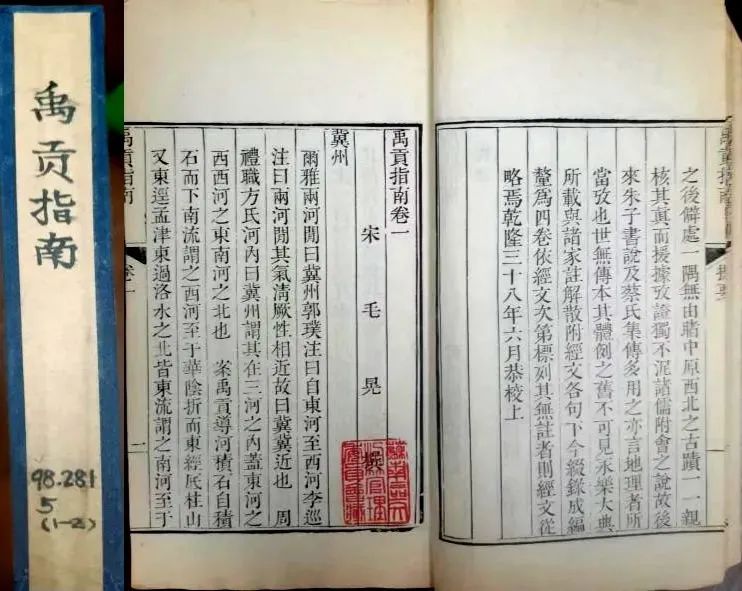 禹贡指南
98.281
5
(1-2)
之後僻處一隅無由睹中原西北之古蹟一一親
核其真而援據攷證獨不泥諸儒附會之說故後
來朱子書說及蔡氏集傳多用之亦言地理者所
當攷也世無傳本其體例之舊不可見永樂大典
所載與諸家註解散附經文各句下今綴錄成編
釐爲四卷依經文次第標列其無註者則經文從
略焉乾隆三十八年六月恭校上
禹貢指南卷一
宋 毛 晃 撰
冀州
爾雅兩河閒曰冀州郭璞注曰自東河至西河李巡
注曰兩河閒其氣清厥性相近故曰冀冀近也 周
禮職方氏河內曰冀州謂其在三河之內蓋東河之
西西河之東南河之北也 案禹貢導河積石自積
石而下南流謂之西河至于華陰折而東經厎柱山
又東逕孟津東過洛水之北皆東流謂之南河至于
禹貢指南
卷一
一
提要